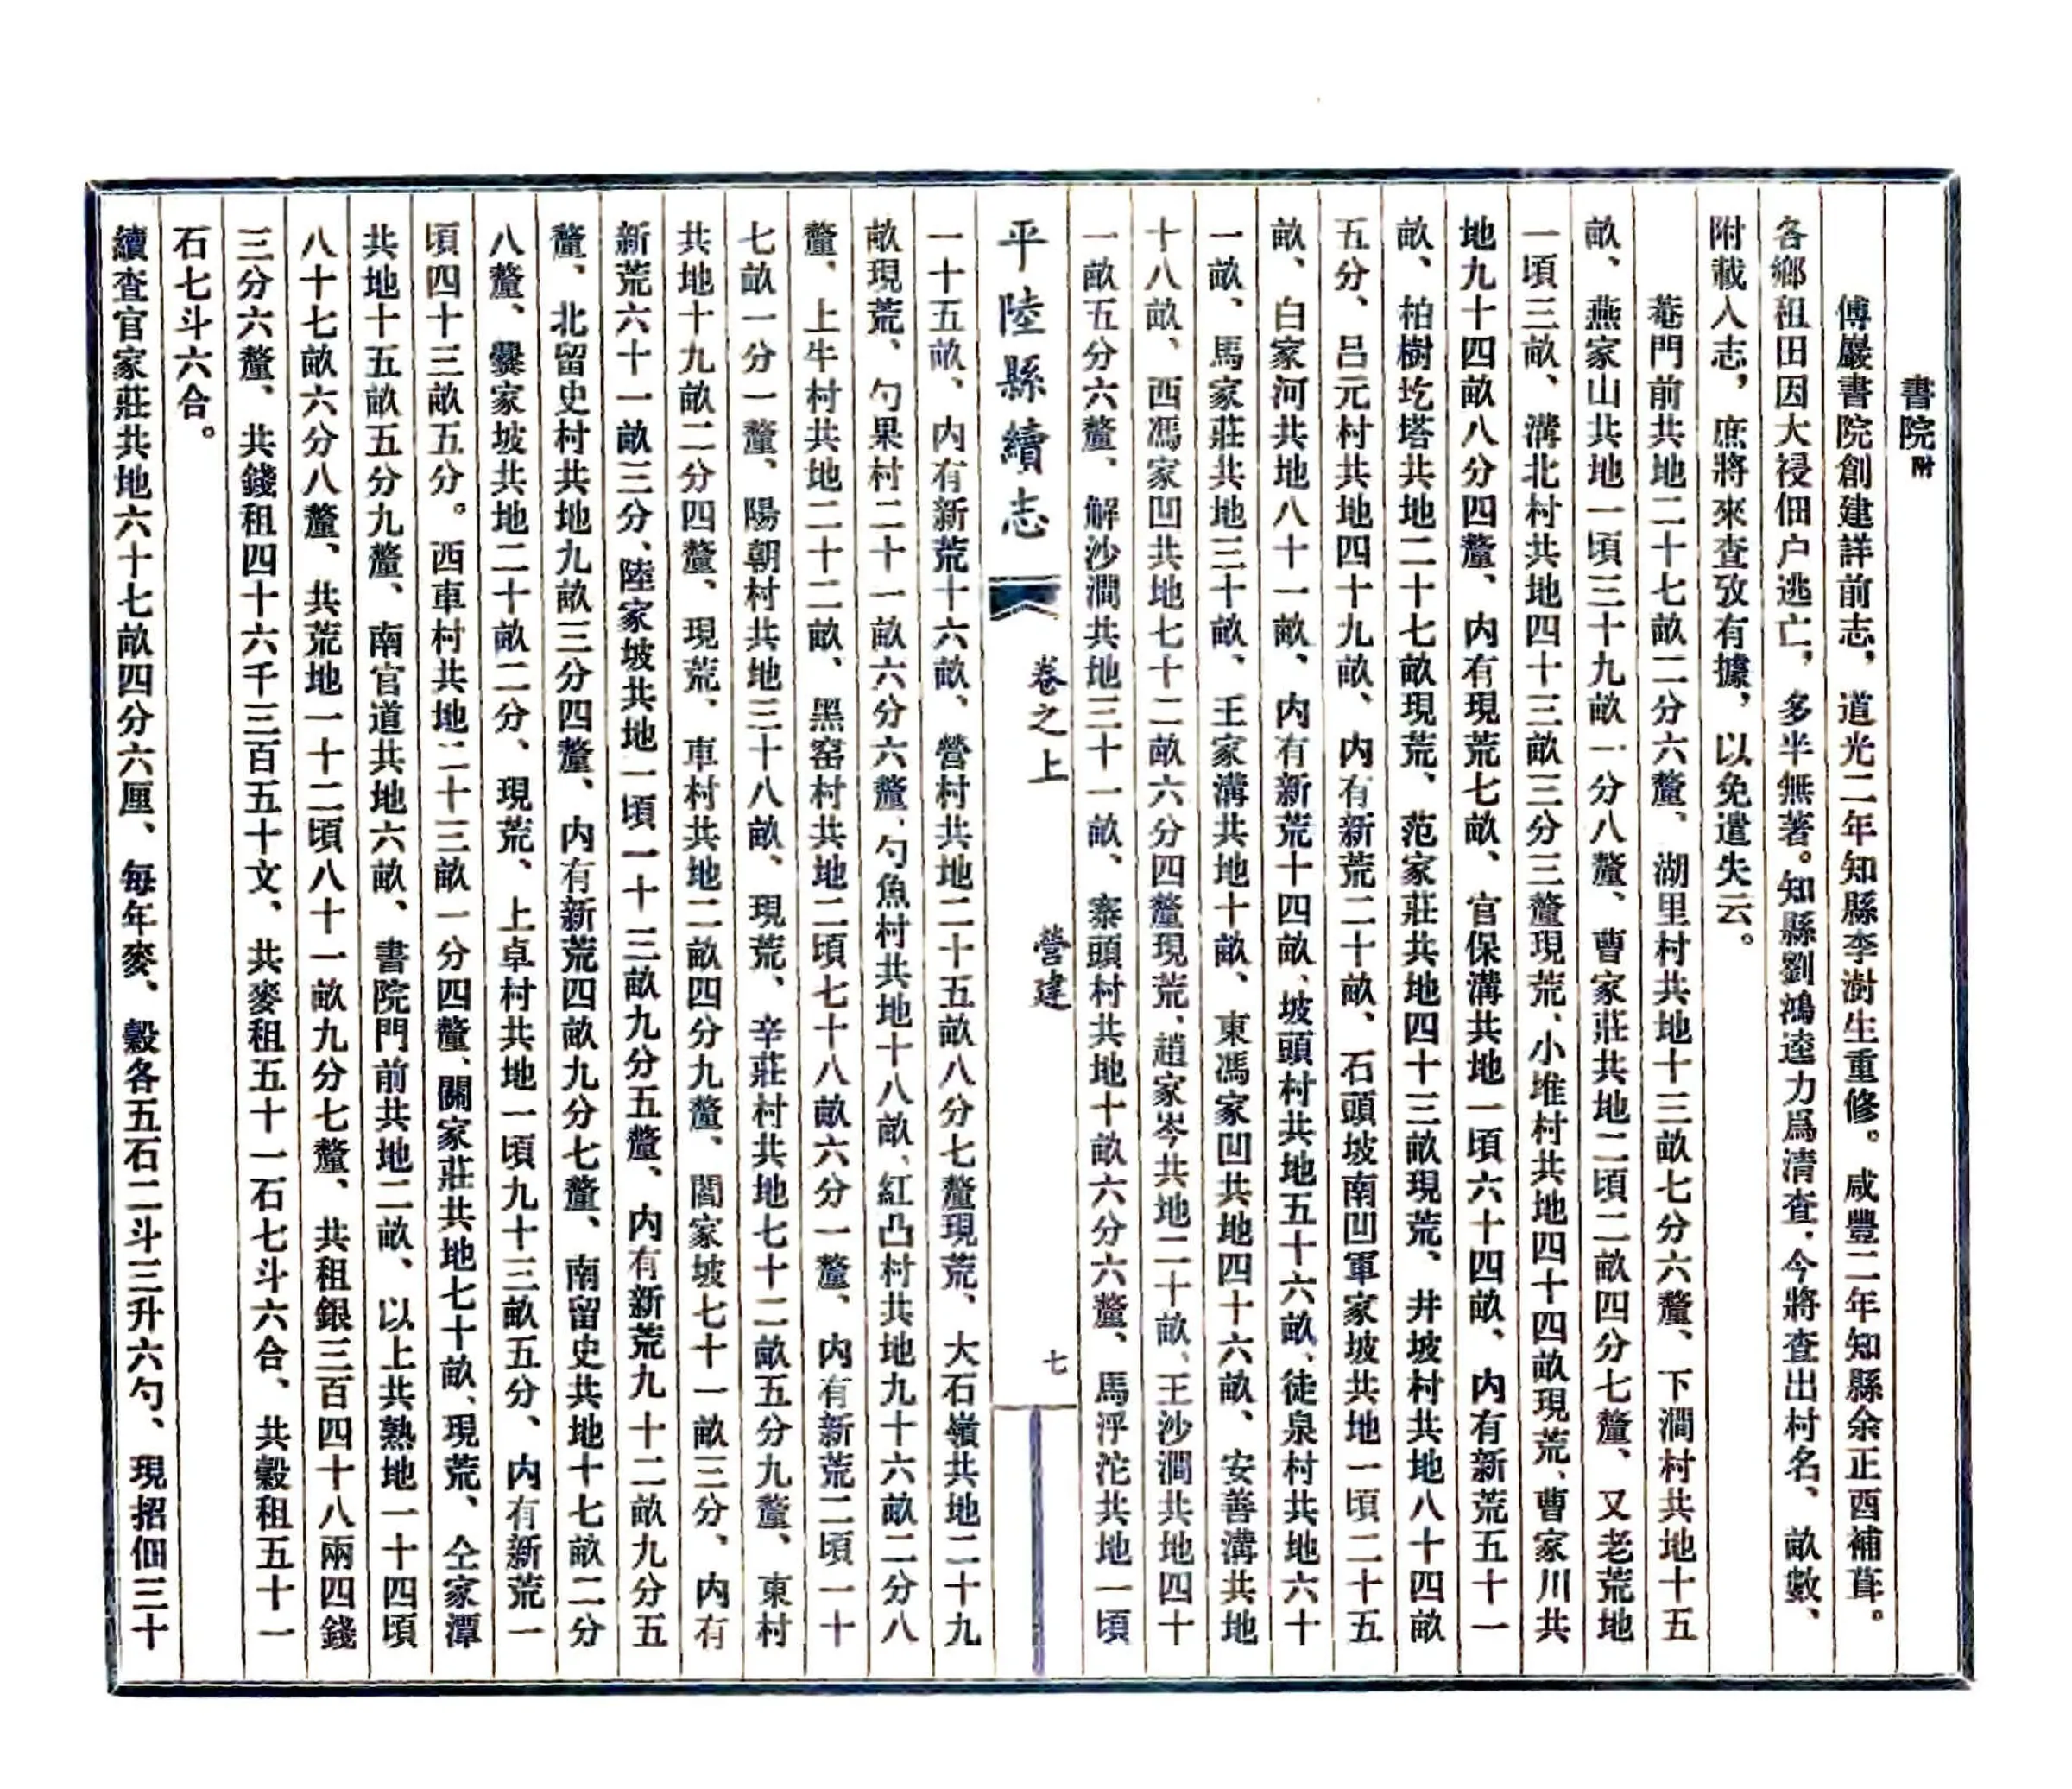 書院附
傅巖書院創建詳前志，道光二年知縣李澍生重修。咸豐二年知縣余正酉補葺。
各鄉租田因大祲佃户逃亡，多半無著。知縣劉鴻逵力爲清查、今將查出村名、畝數、
附載入志，庶將來查攷有據，以免遺失云。
菴門前共地二十七畝二分六釐、湖里村共地十三畝七分六釐、下澗村共地十五
畝、燕家山共地一頃三十九畝一分八釐、曹家莊共地二頃二畝四分七釐、又老荒地
一頃三畝、溝北村共地四十三畝三分三釐現荒、小堆村共地四十四畝現荒、曹家川共
地九十四畝八分四釐、内有現荒七畝、官保溝共地一頃六十四畝、内有新荒五十一
畝、柏樹圪塔共地二十七畝現荒、范家莊共地四十三畝現荒、井坡村共地八十四畝
五分、吕元村共地四十九畝、内有新荒二十畝、石頭坡南凹軍家坡共地一頃二十五
畝、白家河共地八十一畝、内有新荒十四畝、坡頭村共地五十六畝、徒泉村共地六十
一畝、馬家莊共地三十畝、王家溝共地十畝、東馮家凹共地四十六畝、安善溝共地
十八畝、西馮家凹共地七十二畝六分四釐現荒、趙家岑共地二十畝、王沙澗共地四十
一畝五分六釐、解沙澗共地三十一畝、寨頭村共地十畝六分六釐、馬浮沱共地一頃
平陸縣續志 卷之上 營建 七
一十五畝、内有新荒十六畝、營村共地二十五畝八分七釐現荒、大石嶺共地二十九
畝現荒、勺果村二十一畝六分六釐、勺魚村共地十八畝、紅凸村共地九十六畝二分八
釐、上牛村共地二十二畝、黑窑村共地二頃七十八畝六分一釐、内有新荒二頃一十
七畝一分一釐、陽朝村共地三十八畝、現荒、辛莊村共地七十二畝五分九釐、東村
共地十九畝二分四釐、現荒、車村共地二畝四分九釐、閻家坡七十一畝三分、内有
新荒六十一畝三分、陸家坡共地一頃一十三畝九分五釐、内有新荒九十二畝九分五
釐、北留史村共地九畝三分四釐、内有新荒四畝九分七釐、南留史共地十七畝二分
八釐、爨家坡共地二十畝二分、現荒、上卓村共地一頃九十三畝五分、内有新荒一
頃四十三畝五分。西車村共地二十三畝一分四釐、關家莊共地七十畝、現荒、仝家潭
共地十五畝五分九釐、南官道共地六畝、書院門前共地二畝、以上共熟地一十四頃
八十七畝六分八釐、共荒地一十二頃八十一畝九分七釐、共租銀三百四十八兩四錢
三分六釐、共錢租四十六千三百五十文、共麥租五十一石七斗六合、共穀租五十一
石七斗六合。
續查官家莊共地六十七畝四分六厘、每年麥、穀各五石二斗三升六勺、現招佃三十